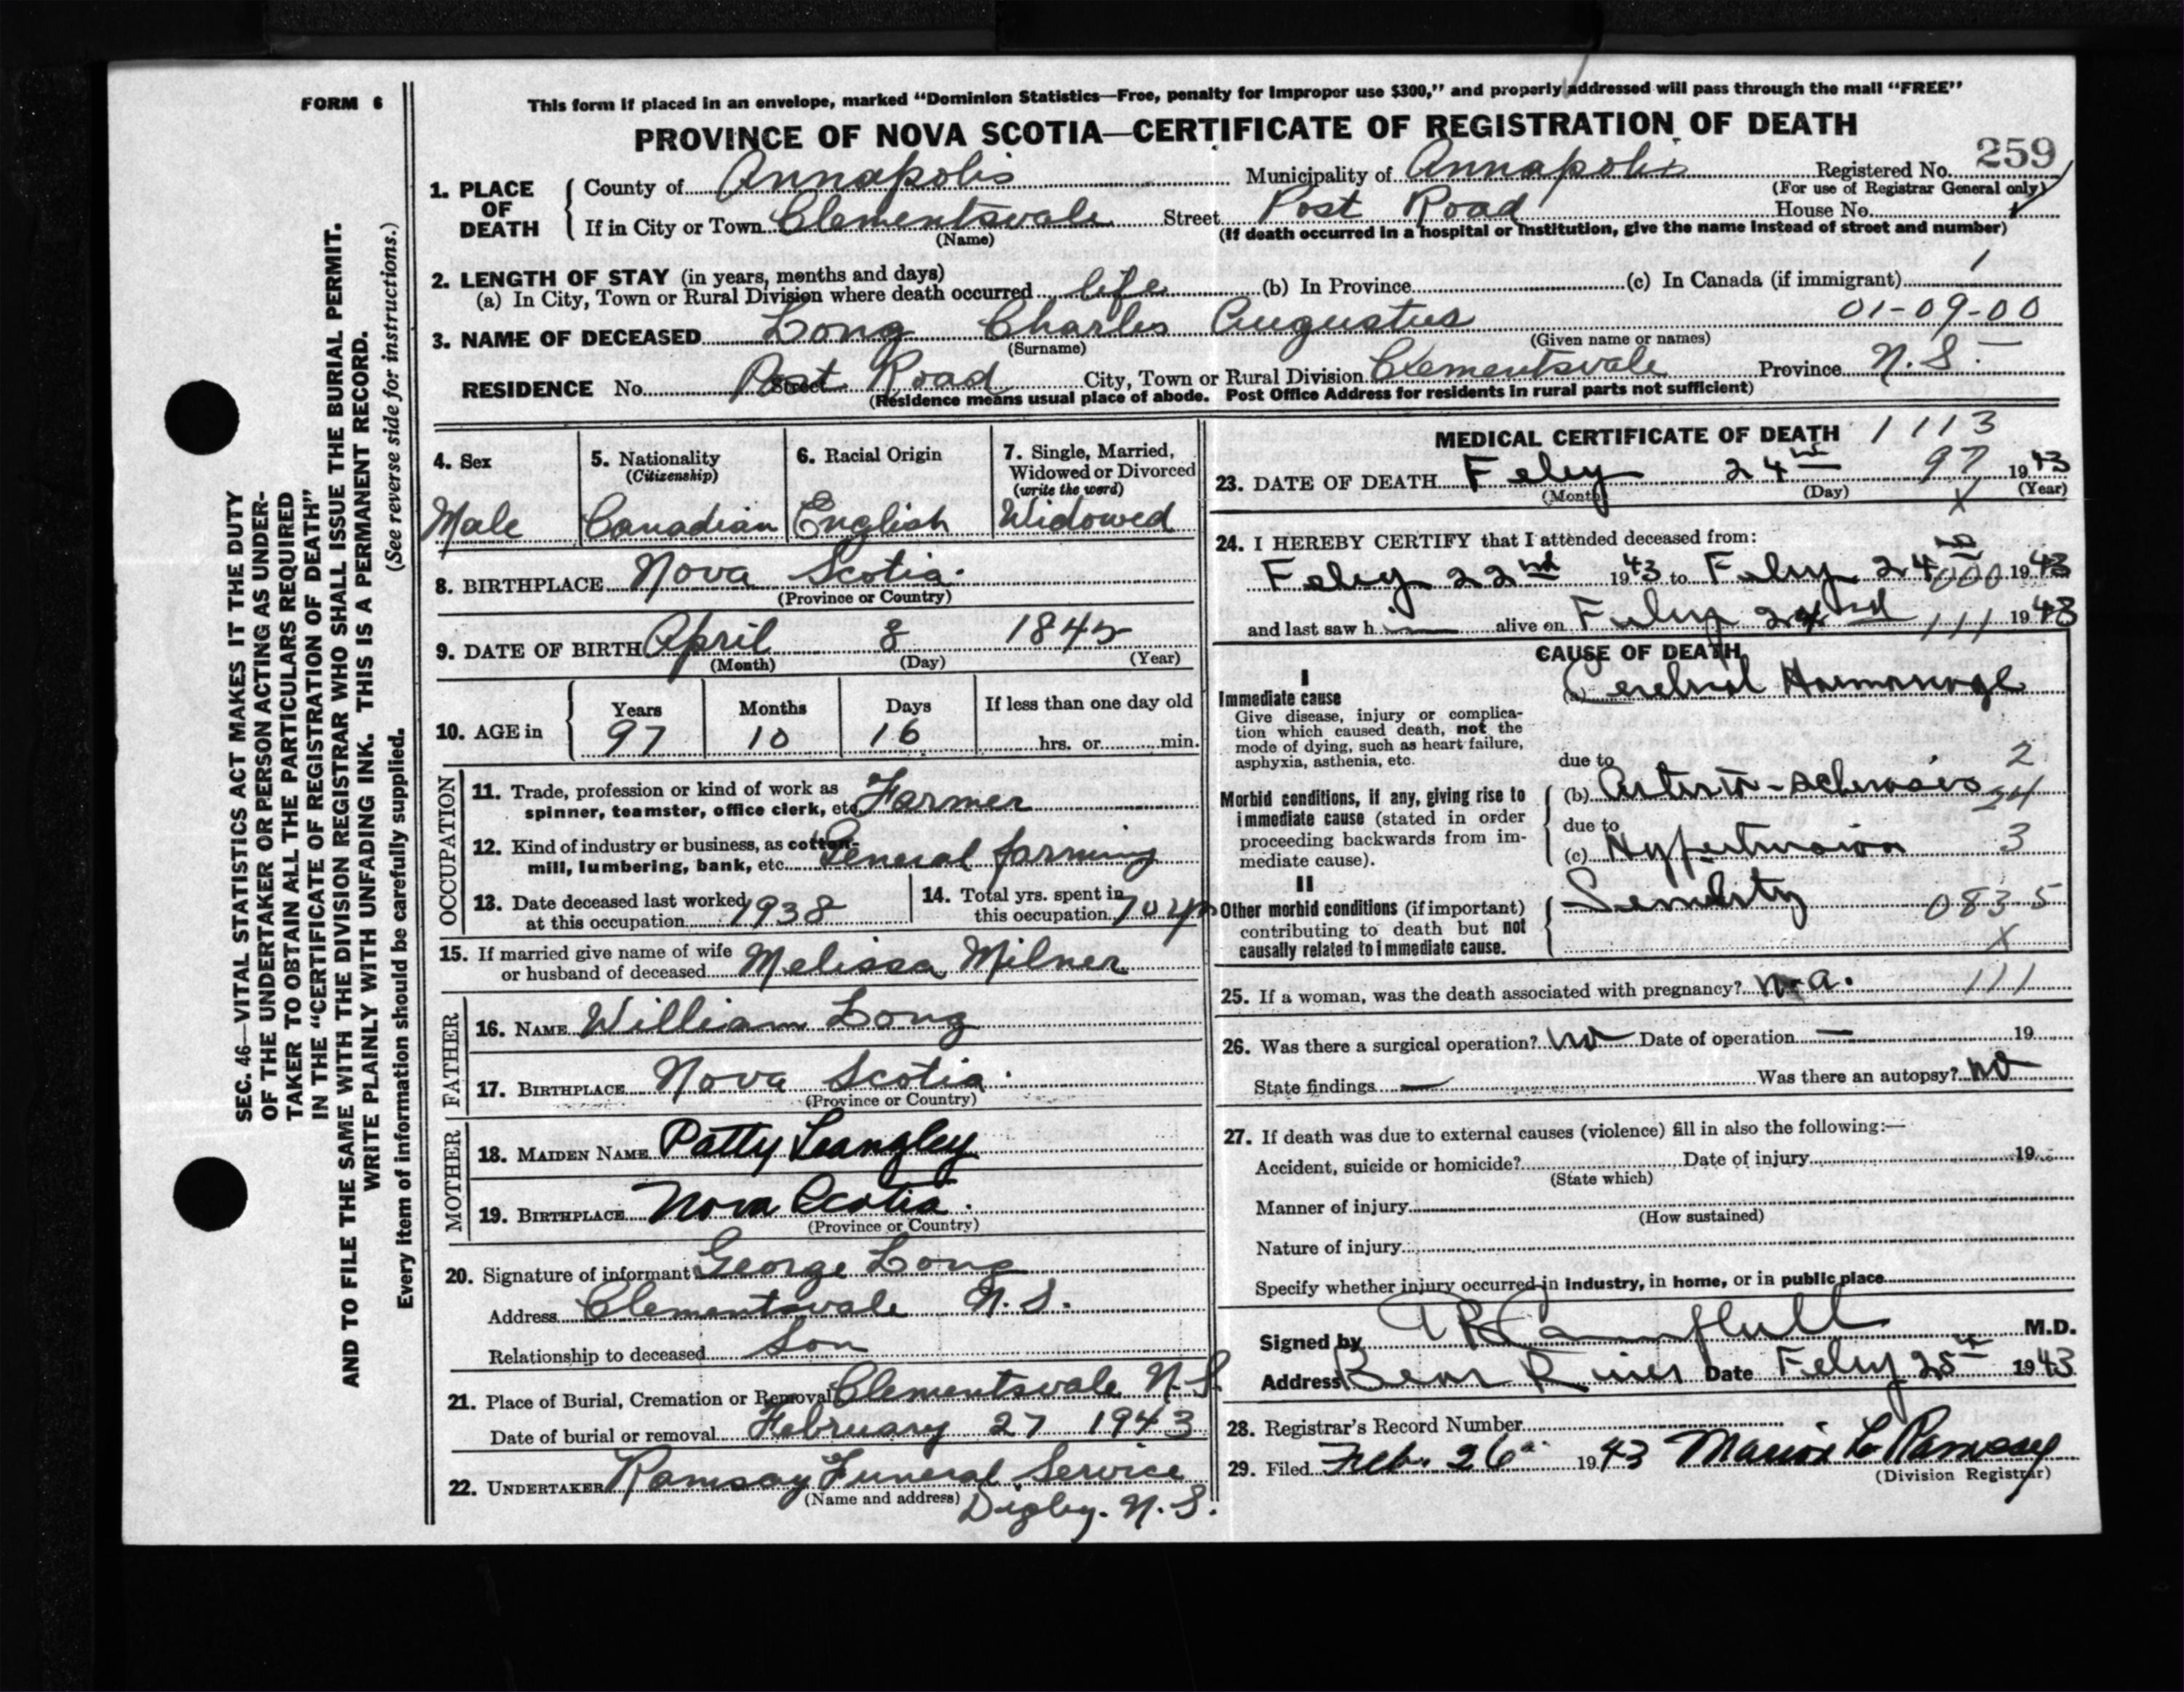 FORM 6
This form if placed in an envelope, marked "Dominion Statistics—Free, penalty for improper use $300," and properly addressed will pass through the mail "FREE"
PROVINCE OF NOVA SCOTIA—CERTIFICATE OF REGISTRATION OF DEATH
259
1. PLACE OF DEATH
County of Annapolis Municipality of Annapolis Registered No.
(For use of Registrar General only)
If in City or Town Clementsvale Street Post Road House No.
(Name) (If death occurred in a hospital or institution, give the name instead of street and number)
2. LENGTH OF STAY (in years, months and days)
(a) In City, Town or Rural Division where death occurred life (b) In Province (c) In Canada (if immigrant) 1
3. NAME OF DECEASED Long Charles Augustus 01-09-00
(Surname) (Given name or names)
RESIDENCE No. Post Road Street City, Town or Rural Division Clementsvale Province N.S.
(Residence means usual place of abode. Post Office Address for residents in rural parts not sufficient)
4. Sex
Male
5. Nationality
(Citizenship)
Canadian
6. Racial Origin
English
7. Single, Married,
Widowed or Divorced
(write the word)
Widowed
8. BIRTHPLACE Nova Scotia.
(Province or Country)
9. DATE OF BIRTH April 8 1845
(Month) (Day) (Year)
10. AGE in
Years Months Days If less than one day old
97 10 16 hrs. or min.
OCCUPATION
11. Trade, profession or kind of work as
spinner, teamster, office clerk, etc. Farmer
12. Kind of industry or business, as cotton-
mill, lumbering, bank, etc. General farming
13. Date deceased last worked
at this occupation 1938
14. Total yrs. spent in
this occupation 70 yrs
15. If married give name of wife
or husband of deceased Melissa Milner
FATHER
16. NAME William Long
17. BIRTHPLACE Nova Scotia.
(Province or Country)
MOTHER
18. MAIDEN NAME Patty Leangley
19. BIRTHPLACE Nova Scotia.
(Province or Country)
20. Signature of informant George Long
Address Clementsvale N.S.
Relationship to deceased Son
21. Place of Burial, Cremation or Removal Clementsvale N.S.
Date of burial or removal February 27 1943
22. UNDERTAKER Ramsay Funeral Service
(Name and address) Digby. N.S.
MEDICAL CERTIFICATE OF DEATH 1113
23. DATE OF DEATH Feby 24th 97 1943
(Month) (Day) (Year)
X
24. I HEREBY CERTIFY that I attended deceased from:
Feby 22nd 1943 to Feby 24 000 1943
and last saw h alive on Feby 24 111 1943
CAUSE OF DEATH
I
Immediate cause
Give disease, injury or complica-
tion which caused death, not the
mode of dying, such as heart failure,
asphyxia, asthenia, etc.
(a) Cerebral Haemorrhage
due to 2
Morbid conditions, if any, giving rise to
immediate cause (stated in order
proceeding backwards from im-
mediate cause).
(b) Arterio-sclerosis 24
due to
(c) Hypertension 3
II
Other morbid conditions (if important)
contributing to death but not
causally related to immediate cause.
Senility 0835
X
25. If a woman, was the death associated with pregnancy? n.a. 111
26. Was there a surgical operation? no Date of operation — 19
State findings — Was there an autopsy? no
27. If death was due to external causes (violence) fill in also the following:—
Accident, suicide or homicide? Date of injury 19
(State which)
Manner of injury
(How sustained)
Nature of injury
Specify whether injury occurred in industry, in home, or in public place
Signed by Campbell M.D.
Address Bear River Date Feby 25th 1943
28. Registrar's Record Number
29. Filed Feb. 26 1943 L. Ramsay
(Division Registrar)
SEC. 46—VITAL STATISTICS ACT MAKES IT THE DUTY
OF THE UNDERTAKER OR PERSON ACTING AS UNDER-
TAKER TO OBTAIN ALL THE PARTICULARS REQUIRED
IN THE "CERTIFICATE OF REGISTRATION OF DEATH"
AND TO FILE THE SAME WITH THE DIVISION REGISTRAR WHO SHALL ISSUE THE BURIAL PERMIT.
WRITE PLAINLY WITH UNFADING INK. THIS IS A PERMANENT RECORD.
(See reverse side for instructions.)
Every item of information should be carefully supplied.